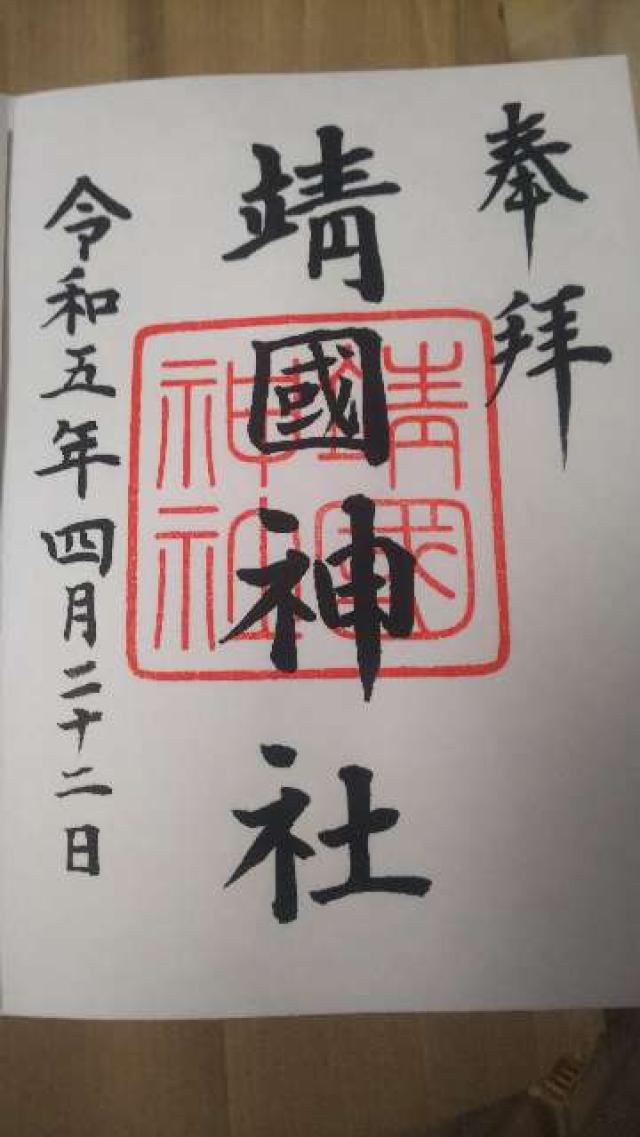 奉拝
靖國神社
靖國
神社
令和五年四月二十二日